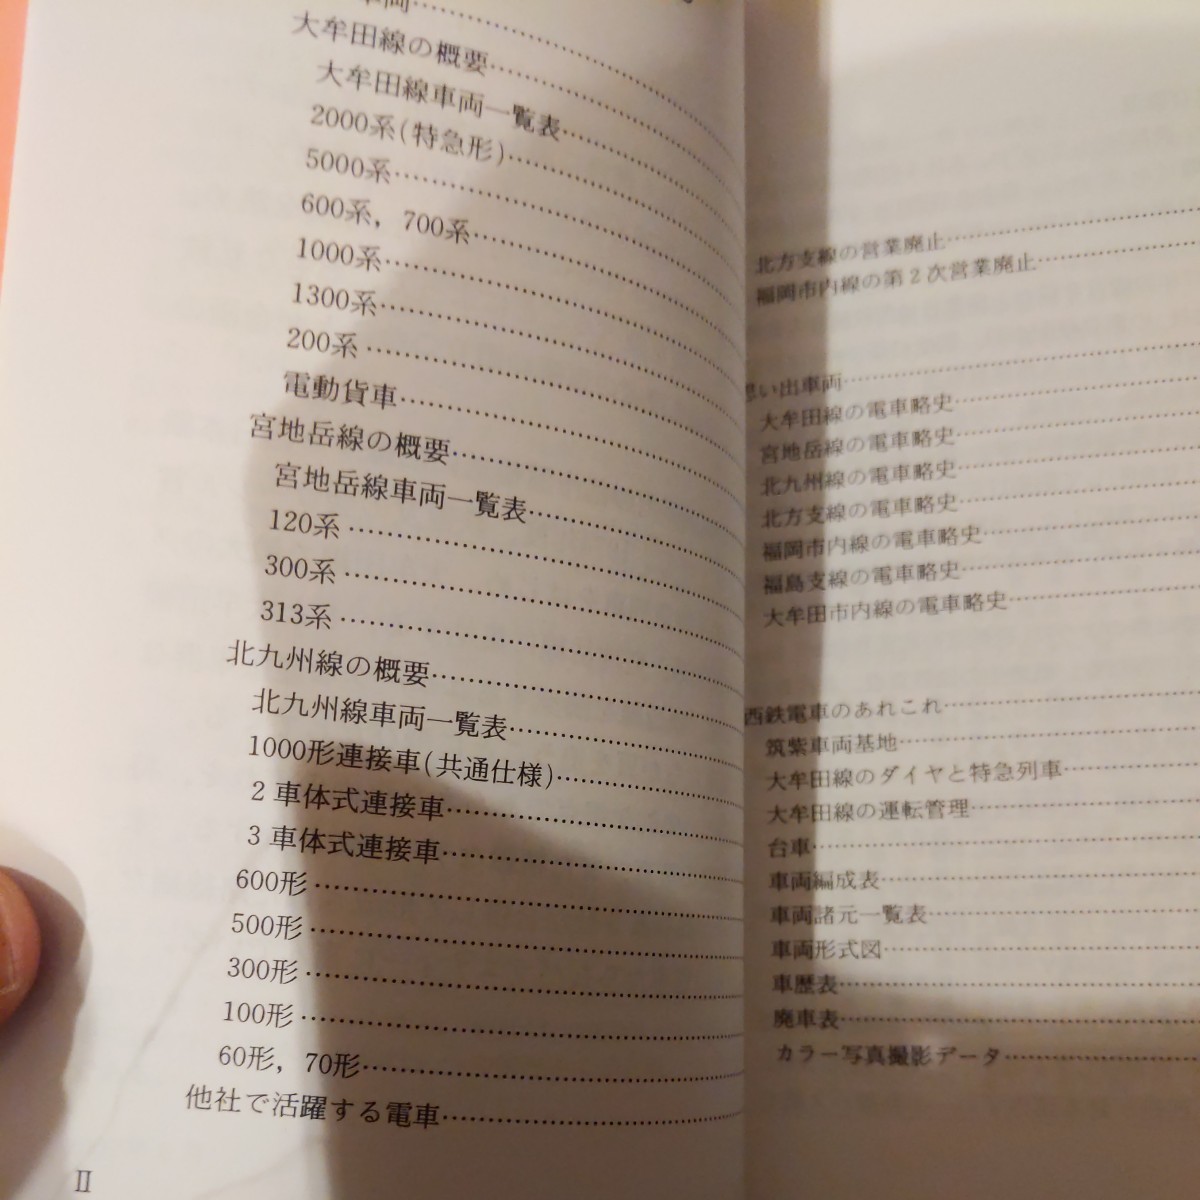 車両
大牟田線の概要
大牟田線車両一覧表
2000系(特急形)
5000系
600系，700系
1000系
1300系
200系
電動貨車
宮地岳線の概要
宮地岳線車両一覧表
120系
300系
313系
北九州線の概要
北九州線車両一覧表
1000形連接車(共通仕様)
2車体式連接車
3車体式連接車
600形
500形
300形
100形
60形，70形
他社で活躍する電車
II
北方支線の営業廃止
福岡市内線の第2次営業廃止
思い出車両
大牟田線の電車略史
宮地岳線の電車略史
北九州線の電車略史
北方支線の電車略史
福岡市内線の電車略史
福島支線の電車略史
大牟田市内線の電車略史
西鉄電車のあれこれ
筑紫車両基地
大牟田線のダイヤと特急列車
大牟田線の運転管理
台車
車両編成表
車両諸元一覧表
車両形式図
車歴表
廃車表
カラー写真撮影データ